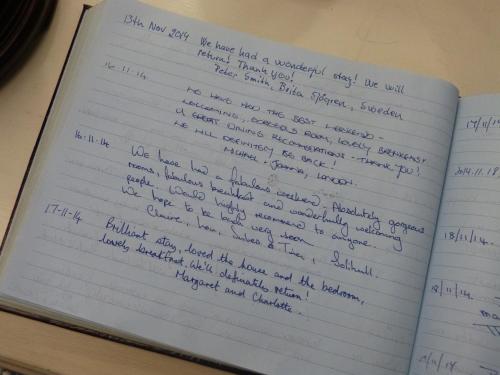 13th Nov 2014 We have had a wonderful stay! We will
return! Thank you!
Peter Smith, Brita Sjögren, Sweden
16-11-14
WE HAVE HAD THE BEST WEEKEND -
WELCOMING, GORGEOUS ROOM, LOVELY BREAKFAST
& GREAT DINING RECOMMENDATIONS - THANK YOU!
WE WILL DEFINITELY BE BACK!
MICHAEL & JOANNA, LONDON.
16-11-14 We have had a fabulous weekend. Absolutely gorgeous
rooms, fabulous breakfast and wonderfully welcoming
people. Would highly recommend to anyone.
We hope to be back very soon
Solihull.
17-11-14 Brilliant stay, loved the house and the bedroom,
lovely breakfast. We'll definately return!
Margaret and Charlotte.
17/11/1
2014.11.18
18/11/14.
18/11/14.